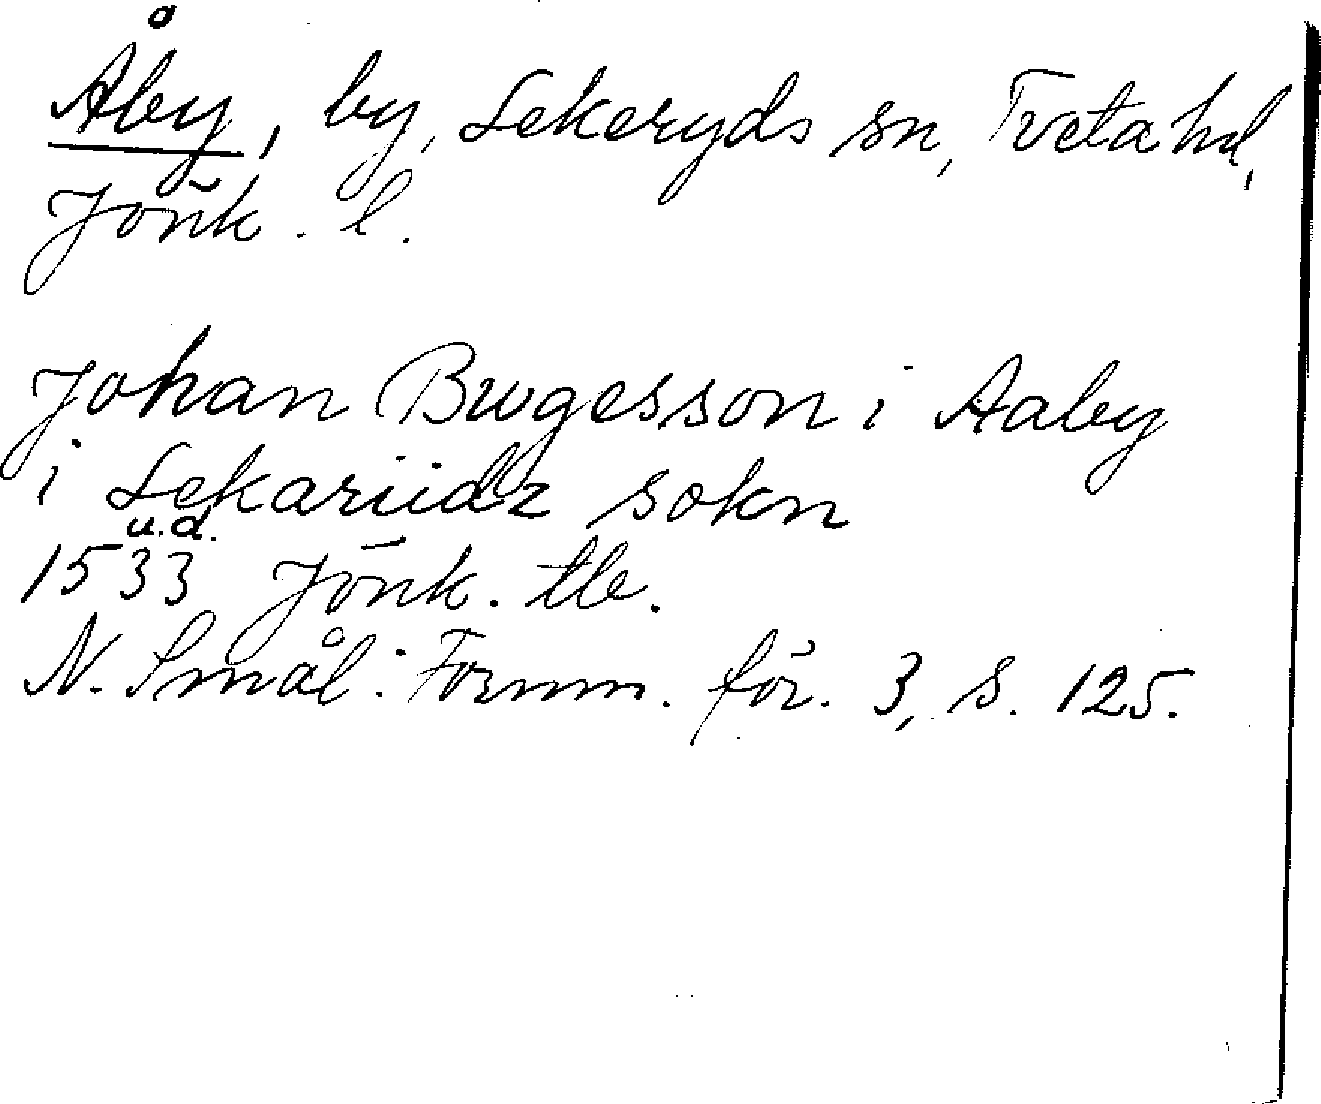 Åby, by, Lekeryds sn, Tveta hd,
Jönk. l.
Johan Bwgesson i Aaby
i Lekariidz sokn
u.d.
1533 Jönk. tb.
N. Smål. Fornm. för. 3, s. 125.